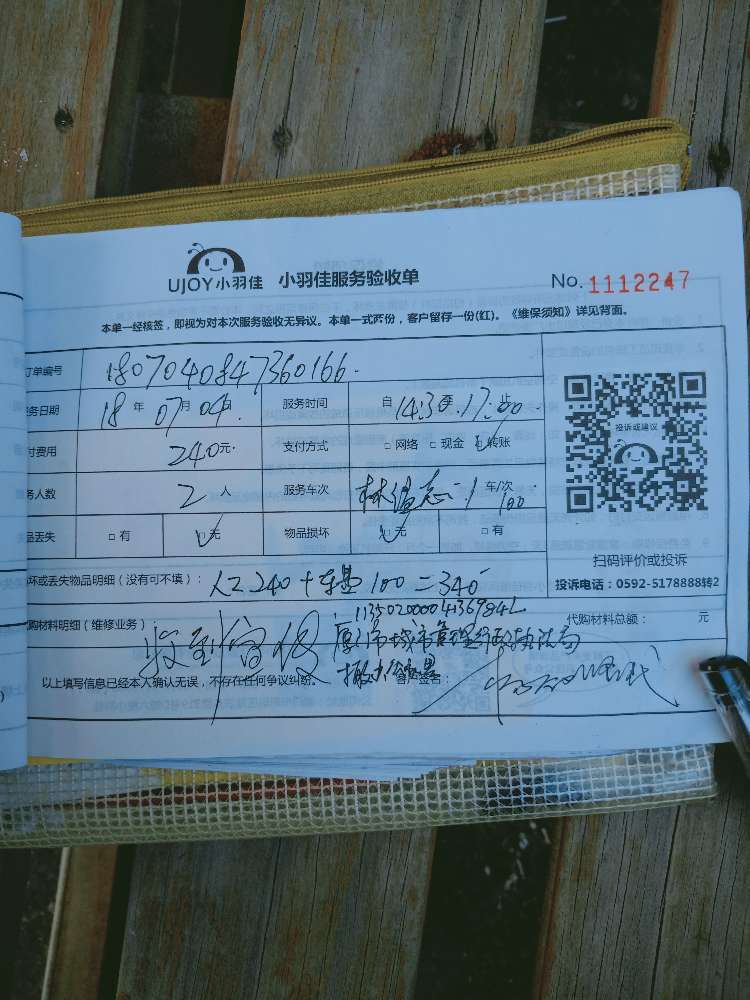 UJOY小羽佳 小羽佳服务验收单 No. 1112247
本单一经核签，即视为对本次服务验收无异议。本单一式两份，客户留存一份(红)。《维保须知》详见背面。
订单编号 1807040847360166
务日期 18年07月04日 服务时间 自14:30至17:00止
付费用 240元 支付方式 □网络 □现金 ☑转账
务人数 2人 服务车次 1车/次 100
投诉或建议
品丢失 □有 ☑无 物品损坏 ☑无 □有
扫码评价或投诉
坏或丢失物品明细（没有可不填）： 人工240+车量100=340
投诉电话：0592-5178888转2
11350200004136984L
购材料明细（维修业务） 厦门市城市管理行政执法局 代购材料总额： 元
以上填写信息已经本人确认无误，不存在任何争议纠纷。 客户签名：